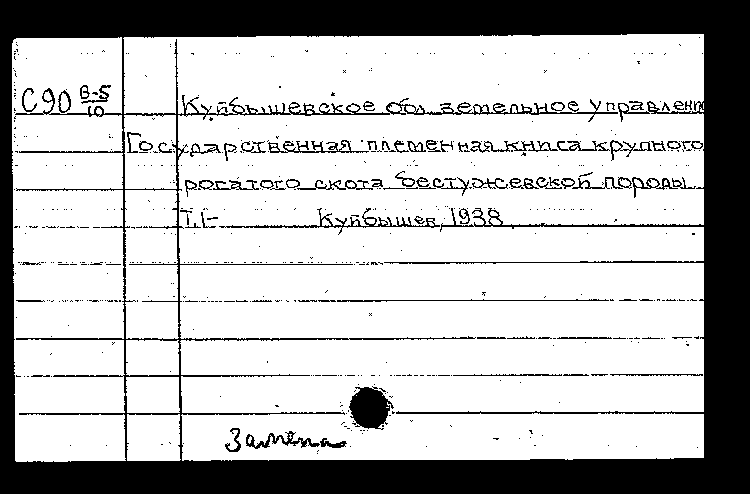 С90 В-5/10
Куйбышевское обл. земельное управлен
Государственная племенная книга крупного
рогатого скота бестужевской породы
Т.1- Куйбышев, 1938
Замена